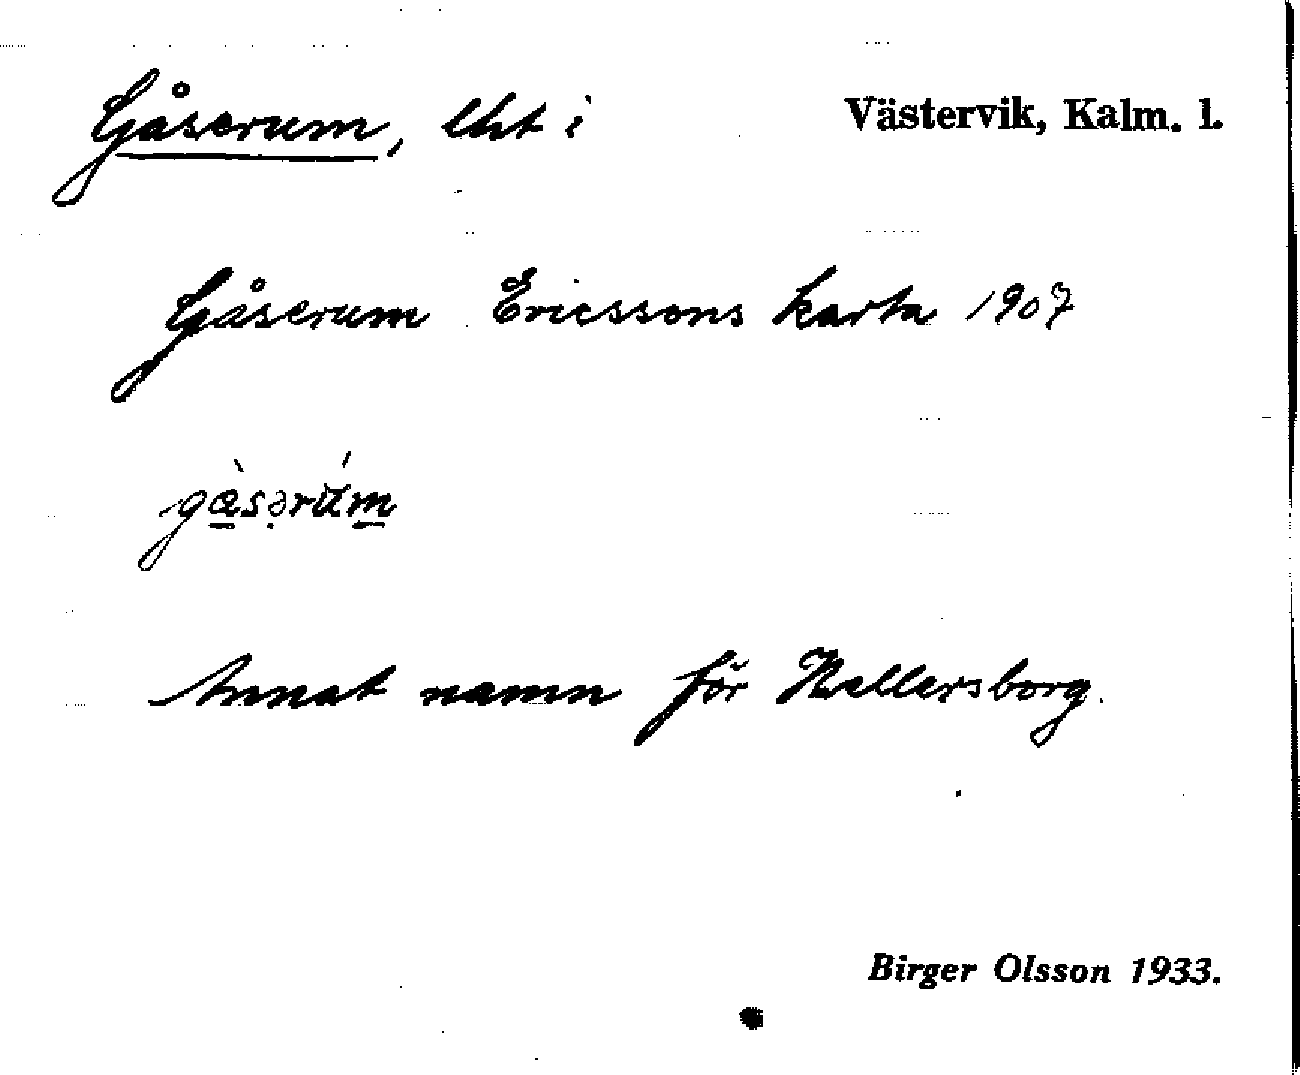 Gåserum, lht i Västervik, Kalm. l.
Gåserum Ericssons karta 1907
gàsərúm
Annat namn för Kallersborg.
Birger Olsson 1933.